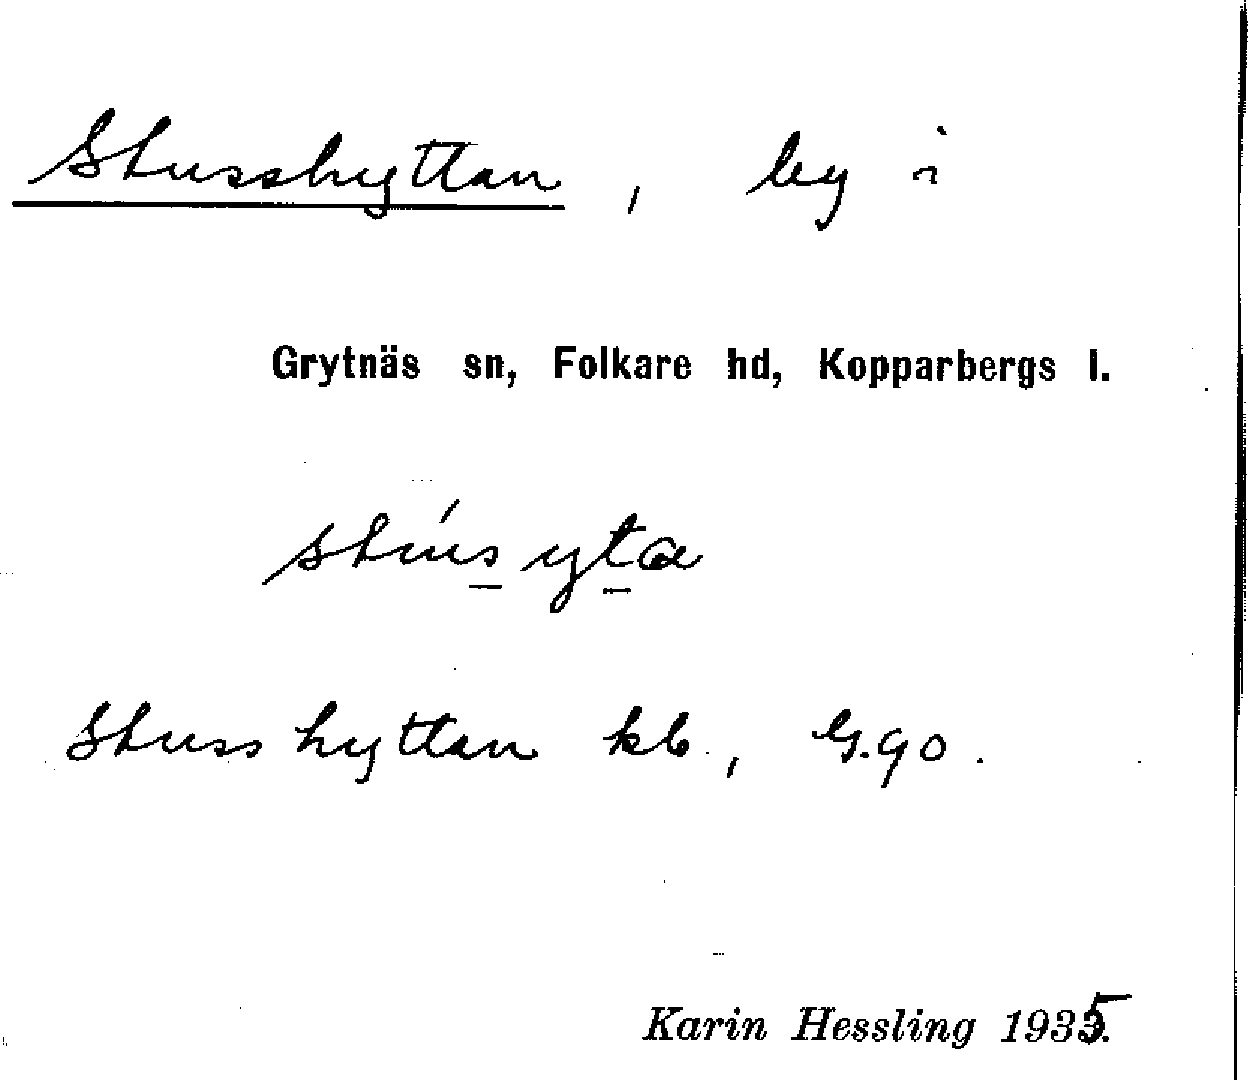 Stusshyttan, by i
Grytnäs sn, Folkare hd, Kopparbergs l.
stúsyta
Stusshyttan kb., G.90.
Karin Hessling 1935.